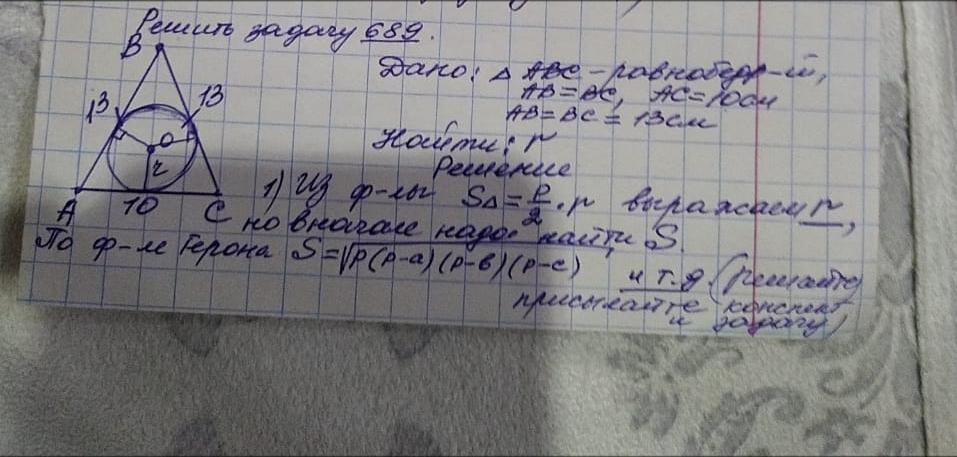 Решить задачу 689.
B
13 13
O
r
A 10 C
Дано: △ ABC - равнобедр-й,
AB=BC, AC=10см
AB=BC=13см
Найти: r
Решение
1) Из ф-лы S△ = P/2 · r выражаем r,
но вначале надо найти S.
По ф-ле Герона S=√P(P-a)(P-в)(P-c)
и т.д. (решайте
присылайте конспект
и задачу)